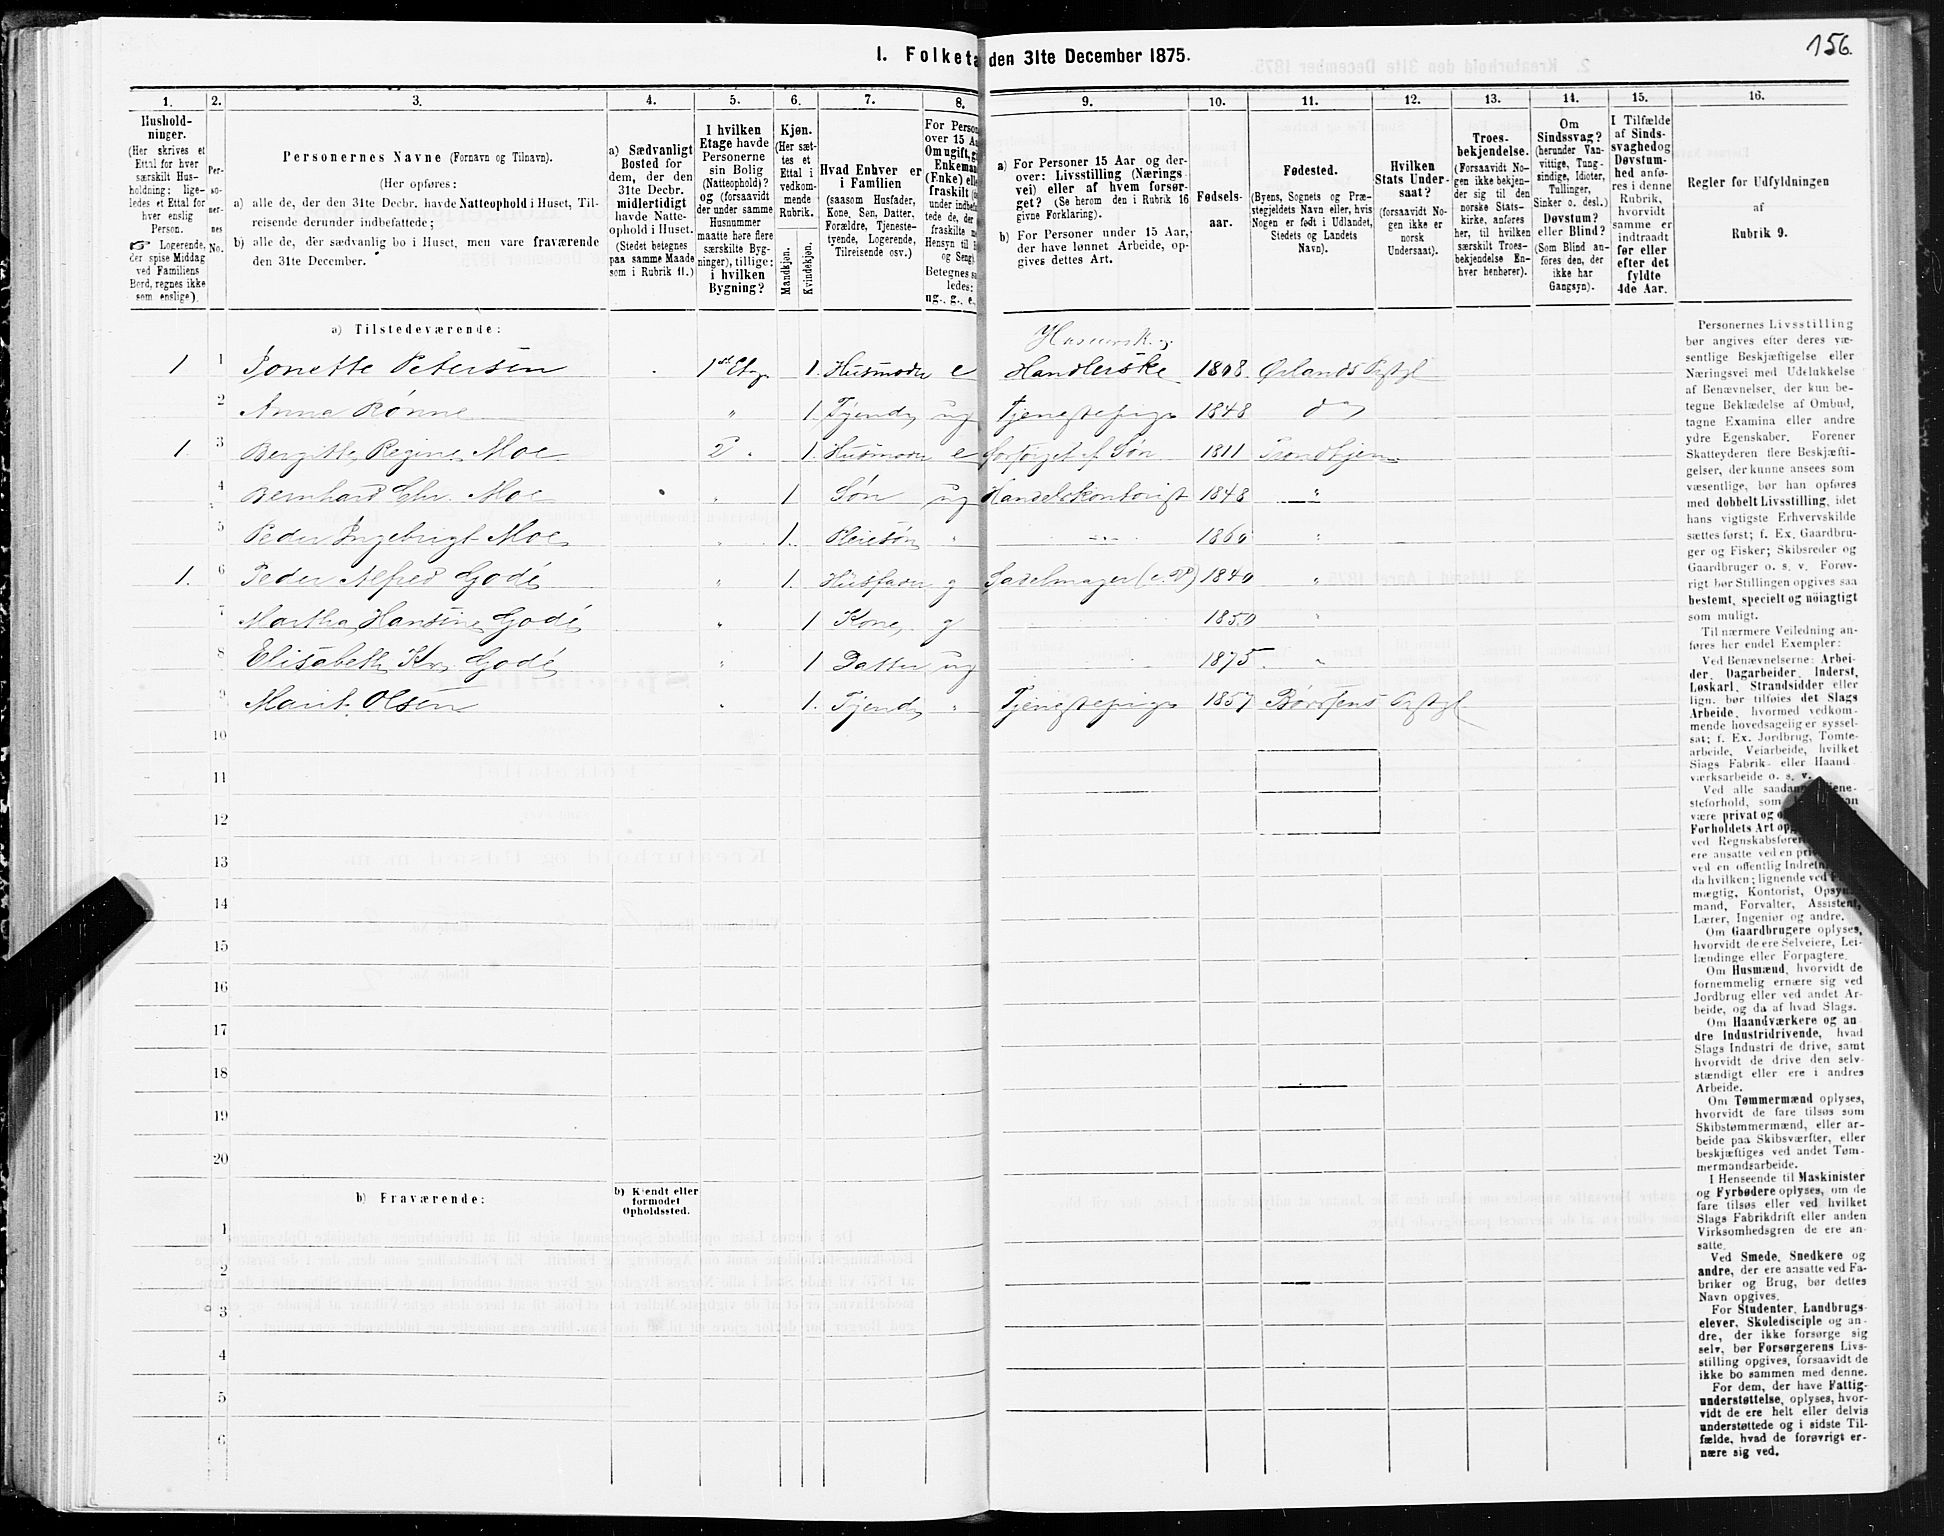 156.
I. Folketa den 31te December 1875.
1. 2. 3. 4. 5. 6. 7. 8. 9. 10. 11. 12. 13. 14. 15. 16.
Hushold-
ninger.
(Her skrives et
Ettal for hver
særskilt Hus-
holdning; lige-
ledes et Ettal for
hver enslig
Person.
☞ Logerende,
der spise Middag
ved Familiens
Bord, regnes ikke
som enslige).
Per-
so-
ner-
nes
No.
Personernes Navne (Fornavn og Tilnavn).
(Her opføres:
a) alle de, der den 31te Decbr. havde Natteophold i Huset, Til-
reisende derunder indbefattede;
b) alle de, der sædvanlig bo i Huset, men vare fraværende
den 31te December.
a) Sædvanligt
Bosted for
dem, der den
31te Decbr.
midlertidigt
havde Natte-
ophold i Huset.
(Stedet betegnes
paa samme Maade
som i Rubrik 11.)
I hvilken
Etage havde
Personerne
sin Bolig
(Natteophold)?
og (forsaavidt
der under samme
Husnummer
maatte høre flere
særskilte Byg-
ninger), tillige:
i hvilken
Bygning?
Kjøn.
(Her sæt-
tes et
Ettal i
vedkom-
mende
Rubrik.
Mandkjøn.
Kvindekjøn.
Hvad Enhver er
i Familien
(saasom Husfader,
Kone, Søn, Datter,
Forældre, Tjeneste-
tyende, Logerende,
Tilreisende osv.)
For Person
over 15 Aa
Om ugift, g
Enkeman
(Enke) elle
fraskilt (
under indbef
tede de, der
fraskilte
Hensyn til
og Seng).
Betegnes sa
ledes:
ug., g., e.
a) For Personer 15 Aar og der-
over: Livsstilling (Nærings-
vei) eller af hvem forsør-
get? (Se herom den i Rubrik 16
givne Forklaring).
b) For Personer under 15 Aar,
der have lønnet Arbeide, op-
gives dettes Art.
Fødsels-
aar.
Fødested.
(Byens, Sognets og Præ-
stegjeldets Navn eller, hvis
Nogen er født i Udlandet,
Stedets og Landets
Navn).
Hvilken
Stats Under-
saat?
(forsaavidt No-
gen ikke er
norsk
Undersaat).
Troes-
bekjendelse.
(Forsaavidt No-
gen ikke bekjen-
der sig til den
norske Stats-
kirke, anføres
her, til hvilken
særskilt Troes-
bekjendelse En-
hver henhører).
Om
Sindssvag?
(herunder Van-
vittige, Tung-
sindige, Idioter,
Tullinger,
Sinker o. desl.)
Døvstum?
eller Blind?
(Som Blind an-
føres den, der
ikke har
Gangsyn).
I Tilfælde
af Sinds-
svaghed og
Døvstum-
hed anfø-
res i denne
Rubrik,
hvorvidt
samme er
indtraadt
før eller
efter det
fyldte
4de Aar.
Regler for Udfyldningen
af
Rubrik 9.
a) Tilstedeværende:
1 1 Jonette Petersen 1ste Etag. 1. Husmoder e Handlerske 1808. Ørlands Prstgl
2 Anna Rønne " 1. Tjende ug Tjenestepige 1848 do
1. 3 Bergitte Regine Moe 2 " 1. Husmoder e forsørget af Søn 1811 Trondhjem
4 Bernhard Chr. Moe " 1 Søn ug Handelskontorist 1848 "
5 Peder Ingebrigt Moe " 1. Pleiesøn " 1860 "
1. 6 Peder Alfred Godé " 1. Husfader g Sadelmager (e. P) 1840 "
7 Martha Hansine Godé " 1 Kone g 1850 "
8 Elisabeth Kr. Godé " 1 Datter ug 1875. "
9 Marit Olsen " 1. Tjende " Tjenestepige 1857 Børsens Prstgl
10
11
12
13
14
15
16
17
18
19
20
b) Fraværende:
b) Kjendt eller
formodet
Opholdssted.
1
2
3
4
5
6
Personernes Livsstilling
bør angives efter deres væ-
sentlige Beskjæftigelse eller
Næringsvei med Udelukkelse
af Benævnelser, der kun be-
tegne Beklædelse af Ombud,
tagne Examina eller andre
ydre Egenskaber. Forener
Skatteyderen flere Beskjæfti-
gelser, der kunne ansees som
væsentlige, bør han opføres
med dobbelt Livsstilling, idet
hans vigtigste Erhvervskilde
sættes først; f. Ex. Gaardbru-
ger og Fisker; Skibsreder og
Gaardbruger o. s. v. Forøv-
rigt bør Stillingen opgives saa
bestemt, specielt og nöiagtigt
som muligt.
Til nærmere Veiledning an-
føres her endel Exempler:
Ved Benævnelserne: Arbei-
der, Dagarbeider, Inderst,
Løskarl, Strandsidder eller
lign. bør tilføies det Slags
Arbeide, hvormed vedkom-
mende hovedsagelig er syssel-
sat; f. Ex. Jordbrug, Tomte-
arbeide, Veiarbeide, hvilket
Slags Fabrik- eller Haand-
værksarbeide o. s. v.
Ved alle saadanne Tjene-
steforhold, som
være privat og
Forholdets Art op
ved Regnskabsføre
ere ansatte ved en
ved en offentlig Indret
da hvilken; lignende ved
mægtig, Kontorist, Opsyns
mand, Forvalter, Assistent,
Lærer, Ingeniør og andre.
Om Gaardbrugere oplyses,
hvorvidt de ere Selveiere, Lei-
lændinge eller Forpagtere.
Om Husmænd, hvorvidt de
fornemmelig ernære sig ved
Jordbrug eller ved andet Ar-
beide, og da af hvad Slags.
Om Haandværkere og an-
dre Industridrivende, hvad
Slags Industri de drive, samt
hvorvidt de drive den selv-
stændigt eller ere i andres
Arbeide.
Om Tømmermænd oplyses,
hvorvidt de fare tilsøs som
Skibstømmermænd, eller ar-
beide paa Skibsværfter, eller
beskjæftiges ved andet Tøm-
mermandsarbeide.
I Henseende til Maskinister
og Fyrbødere oplyses, om de
fare tilsøs eller ved hvilket
Slags Fabrikdrift eller anden
Virksomhedsgren de ere an-
satte.
Ved Smede, Snedkere og
andre, der ere ansatte ved Fa-
briker og Brug, bør dettes
Navn opgives.
For Studenter, Landbrugs-
elever, Skoledisciple og an-
dre, der ikke forsørge sig
selv, bør Forsørgerens Livs-
stilling opgives, forsaavidt de
ikke bo sammen med denne.
For dem, der have Fattig-
understøttelse, oplyses, hvor-
vidt de ere helt eller delvis
understøttede og i sidste Til-
fælde, hvad de forøvrigt er-
nære sig ved.